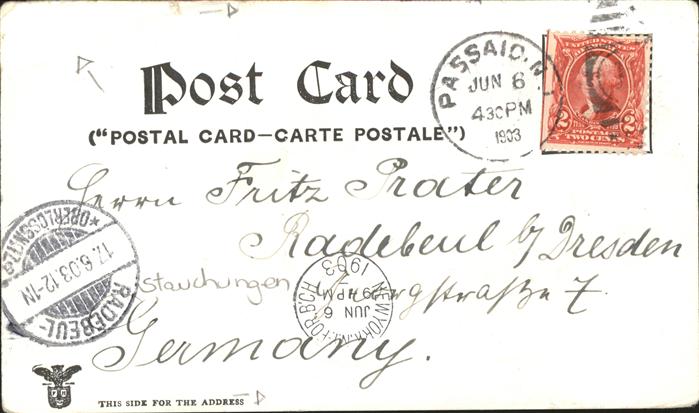 Post Card
("POSTAL CARD—CARTE POSTALE")
PASSAIC, N.J.
JUN 6
430PM
1903
UNITED STATES
POSTAGE
2 2
TWO CENTS
Herrn Fritz Prater
Radebeul b/ Dresden
stauchungen
straße 7.
Germany.
NEW YORK, N.Y. FOR BCH
JUN 6
9 PM
1903
RADEBEUL-
*OBERLÖSSNITZ a
17.6.03.12-1N
THIS SIDE FOR THE ADDRESS